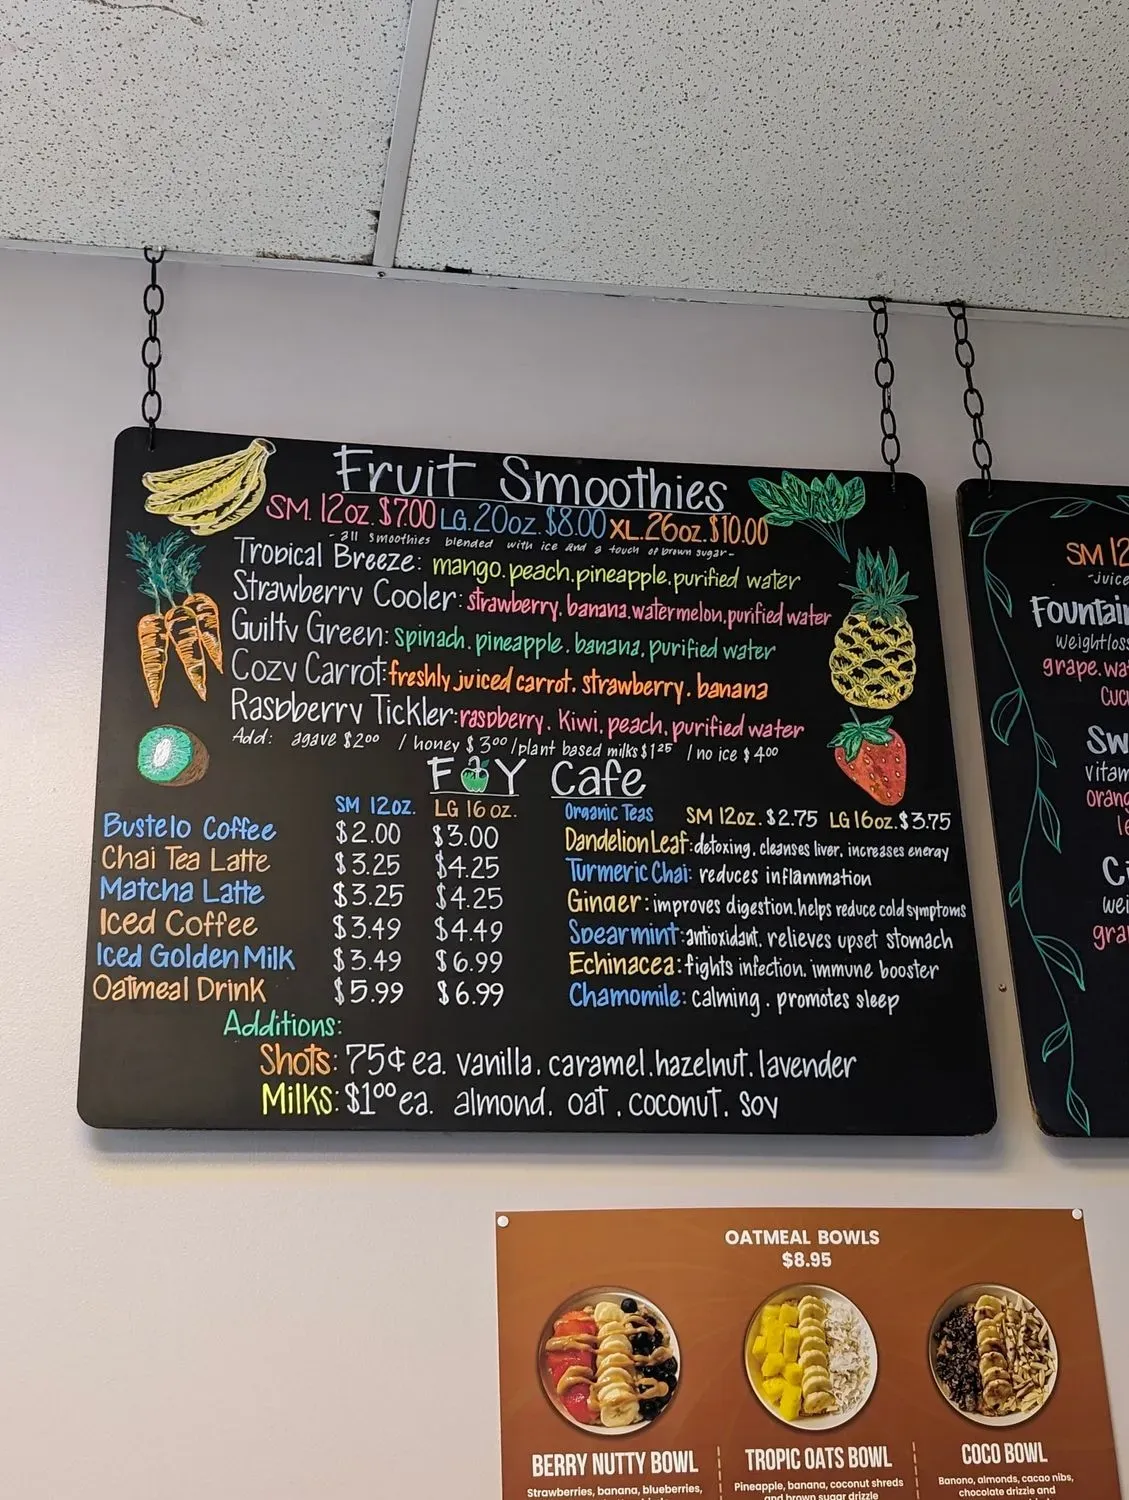 Fruit Smoothies
SM. 12oz. $7.00 LG. 20oz. $8.00 XL. 26oz. $10.00
- all smoothies blended with ice and a touch of brown sugar -
Tropical Breeze: mango. peach. pineapple. purified water
Strawberry Cooler: strawberry, banana. watermelon, purified water
Guilty Green: spinach. pineapple. banana, purified water
Cozy Carrot: freshly juiced carrot. strawberry. banana
Raspberry Tickler: raspberry. Kiwi, peach, purified water
Add: agave $2.00 / honey $3.00 / plant based milks $1.25 / no ice $4.00
F Y Cafe
SM 12oz. LG 16 oz.
Bustelo Coffee $2.00 $3.00
Chai Tea Latte $3.25 $4.25
Matcha Latte $3.25 $4.25
Iced Coffee $3.49 $4.49
Iced Golden Milk $3.49 $6.99
Oatmeal Drink $5.99 $6.99
Organic Teas SM 12oz. $2.75 LG 16oz. $3.75
Dandelion Leaf: detoxing, cleanses liver, increases energy
Turmeric Chai: reduces inflammation
Ginger: improves digestion, helps reduce cold symptoms
Spearmint: antioxidant, relieves upset stomach
Echinacea: fights infection, immune booster
Chamomile: calming. promotes sleep
Additions:
Shots: 75¢ ea. vanilla. caramel. hazelnut. lavender
Milks: $1.00 ea. almond. oat. coconut. soy
SM 12
-juice
Fountain
weightloss
grape. wa
cuc
Sw
vitam
orang
le
Ci
wei
gra
OATMEAL BOWLS
$8.95
BERRY NUTTY BOWL
Strawberries, banana, blueberries,
TROPIC OATS BOWL
Pineapple, banana, coconut shreds
and brown sugar drizzle
COCO BOWL
Banono, almonds, cacao nibs,
chocolate drizzle and